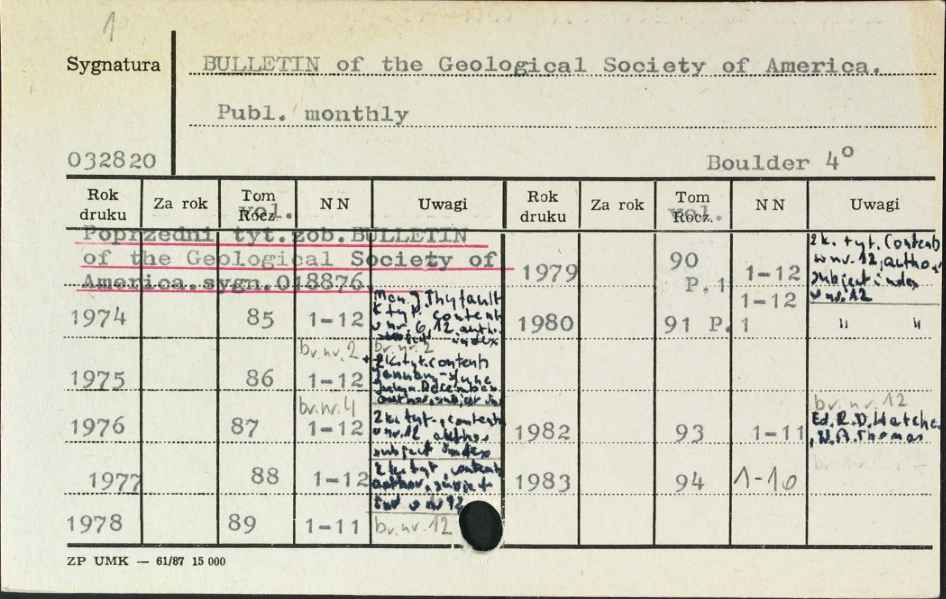 1
Sygnatura BULLETIN of the Geological Society of America.
Publ. monthly
032820 Boulder 4°
Rok druku Za rok Tom Rocz. vol. NN Uwagi Rok druku Za rok Tom Rocz. vol. NN Uwagi
Poprzedni tyt.zob.BULLETIN
of the Geological Society of
America.sygn.018876.
1974 85 1-12
w nr. 6, 12 auth.
subject index
br. nr. 2 br. nr. 2
1975 86 1-12 + 2k. tyt. contents
January-June
July-December
author, subject
br. nr. 4
1976 87 1-12 2k. tyt., contents
w nr. 12 author
subject index
1977 88 1-12 2k. tyt, contents
author, subject
ind w nr 12
1978 89 1-11 br. nr. 12
1979 90 P.1 1-12 2k. tyt. Contents
w nr. 12, author
subject index
w nr. 12
1980 91 P.1 1-12 " "
br. nr. 12
1982 93 1-11 Ed. R.D. Hatcher
, W.A. Thomas
1983 94 1-10
ZP UMK — 61/87 15 000